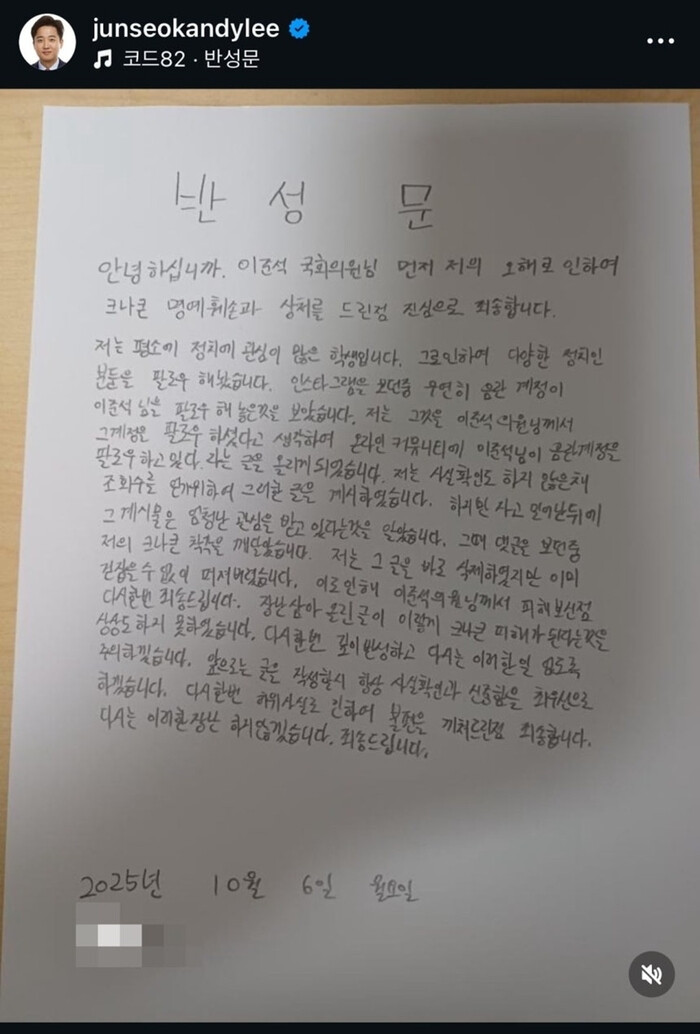 junseokandylee
코드82 · 반성문
반 성 문
안녕하십니까. 이준석 국회의원님 먼저 저의 오해로 인하여
크나큰 명예훼손과 상처를 드린점 진심으로 죄송합니다.
저는 평소에 정치에 관심이 많은 학생입니다. 그로인하여 다양한 정치인
분들을 팔로우 해놨습니다. 인스타그램을 보던중 우연히 음란 계정이
이준석 님을 팔로우 해 놓은것을 보았습니다. 저는 그것을 이준석 의원님께서
그계정을 팔로우 하셨다고 생각하여 온라인 커뮤니티에 이준석님이 음란계정을
팔로우 하고 있다. 라는 글을 올리게 되었습니다. 저는 사실확인도 하지 않은채
조회수를 얻기위하여 그러한 글을 게시하였습니다. 하지만 사고 일어난뒤에
그 게시물은 엄청난 관심을 받고 있다는것을 알았습니다. 그때 댓글을 보던중
저의 크나큰 착각을 깨달았습니다. 저는 그 글을 바로 삭제하였지만 이미
걷잡을수 없이 퍼져버렸습니다. 이로인해 이준석의원님께서 피해보신점
다시한번 죄송드립니다. 장난삼아 올린글이 이렇게 크나큰 피해가 된다는것을
상상도 하지 못하였습니다. 다시한번 깊이반성하고 다시는 이러한일 없도록
주의하겠습니다. 앞으로는 글을 작성할시 항상 사실확인과 신중함을 최우선으로
하겠습니다. 다시한번 허위사실로 인하여 불편을 끼쳐드린점 죄송합니다.
다시는 이러한장난 하지않겠습니다. 죄송드립니다.
2025년 10월 6일 월요일